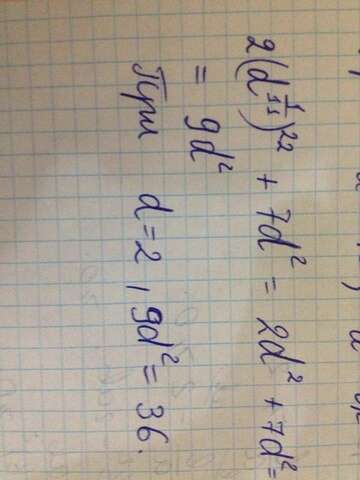 2(d^{1/11})^{22} + 7d² = 2d² + 7d² =
= 9d²
При d = 2, 9d² = 36.